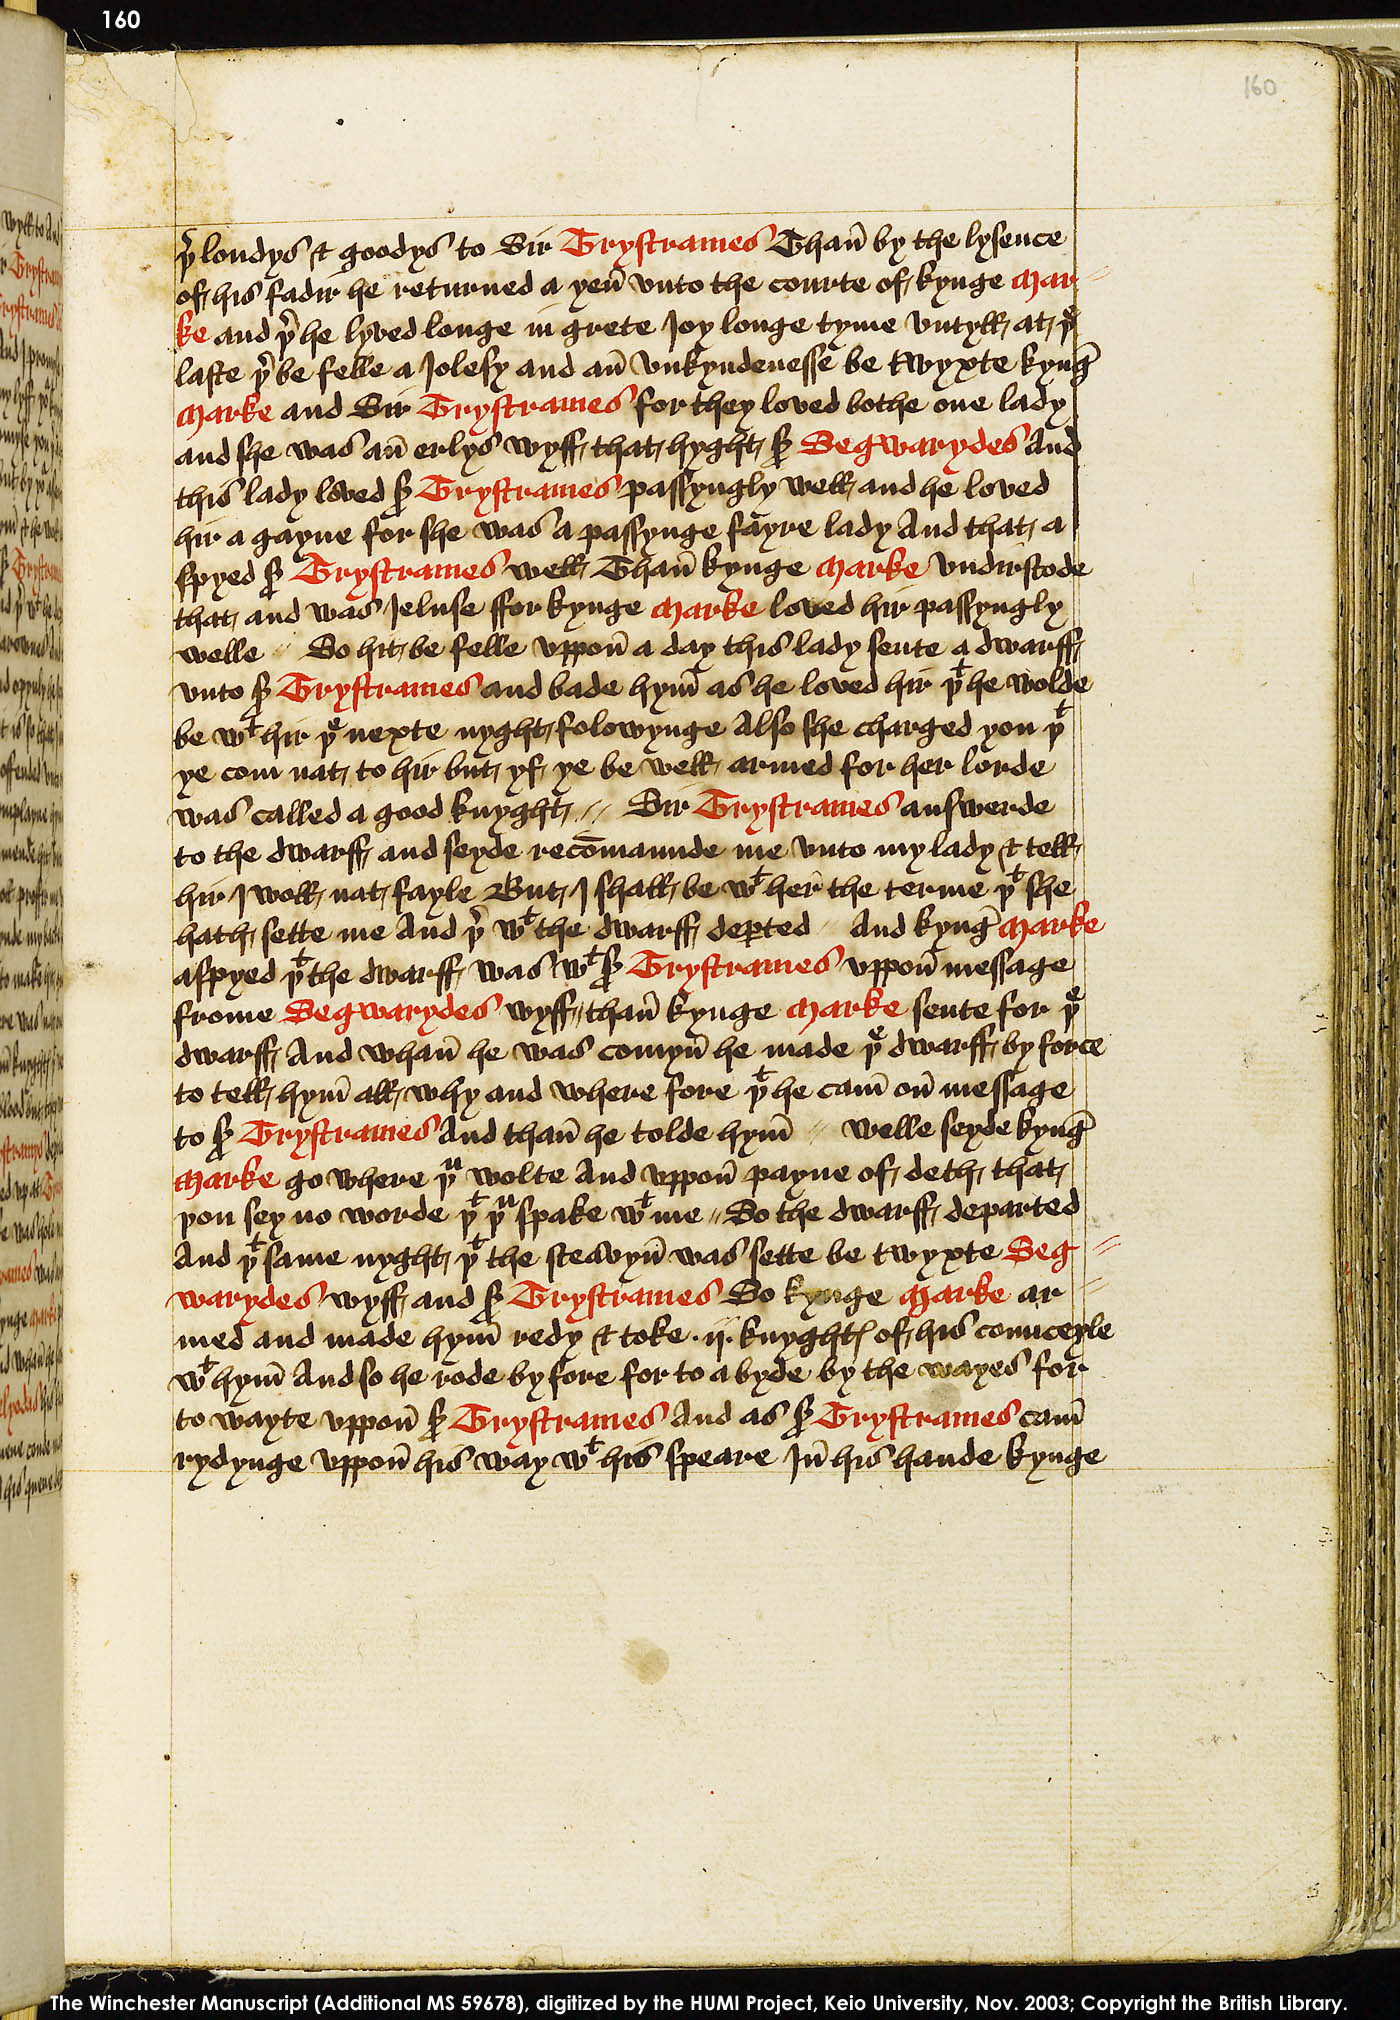 160
160
þer londys & goodys to Sir Trystrames Than by the lysence
of his fadir he returned a yen vnto the courte of kynge Mar
ke and þer he lyved longe in grete Joy longe tyme vntyll at þe
laste þer be felle a Jolesy and an vnkyndenesse be twyxte kyng
Marke and Sir Trystrames for they loved bothe one lady
and she was an erlys wyff that hyght Sir Segwarydes And
this lady loved Sir Trystrames passyngly well and he loved
hir a gayne for she was a passynge fayre lady And that a
spyed Sir Trystrames well Than kynge Marke vndirstode
that and was Jeluse ffor kynge Marke loved hir passyngly
welle // So hit be felle vppon a day this lady sente a dwarff
vnto Sir Trystrames and bade hym as he loved hir þt he wolde
be wt hir þe nexte nyght folowynge Also she charged you þt
ye com nat to hir but yf ye be well armed for her lorde
was called a good knyght // Sir Trystrames answerde
to the dwarff and seyde recōmaunde me vnto my lady & tell
hir I woll nat fayle But I shall be wt her the terme þt she
hath sette me And þer wt the dwarff deperted // And kyng Marke
aspyed þt the dwarff was wt Sir Trystrames vppon message
frome Segwarydes wyff than kynge Marke sente for þe
dwarff And whan he was comyn he made þe dwarff by force
to tell hym all why and where fore þt he cam on message
to Sir Trystrames And than he tolde hym // Welle seyde kyng
Marke go where þu wolte And vppon payne of deth that
you sey no worde þt þu spake wt me // So the dwarff departed
And þt same nyght þt the stevyn was sette be twyxte Seg
warydes wyff and Sir Trystrames So kynge Marke ar
med and made hym redy & toke .ij. knyghtes of his counceyle
wt hym And so he rode by fore for to a byde by the wayes for
to wayte vppon Sir Trystrames And as Sir Trystrames cam
rydynge vppon his way wt his speare In his hande kynge
The Winchester Manuscript (Additional MS 59678), digitized by the HUMI Project, Keio University, Nov. 2003; Copyright the British Library.